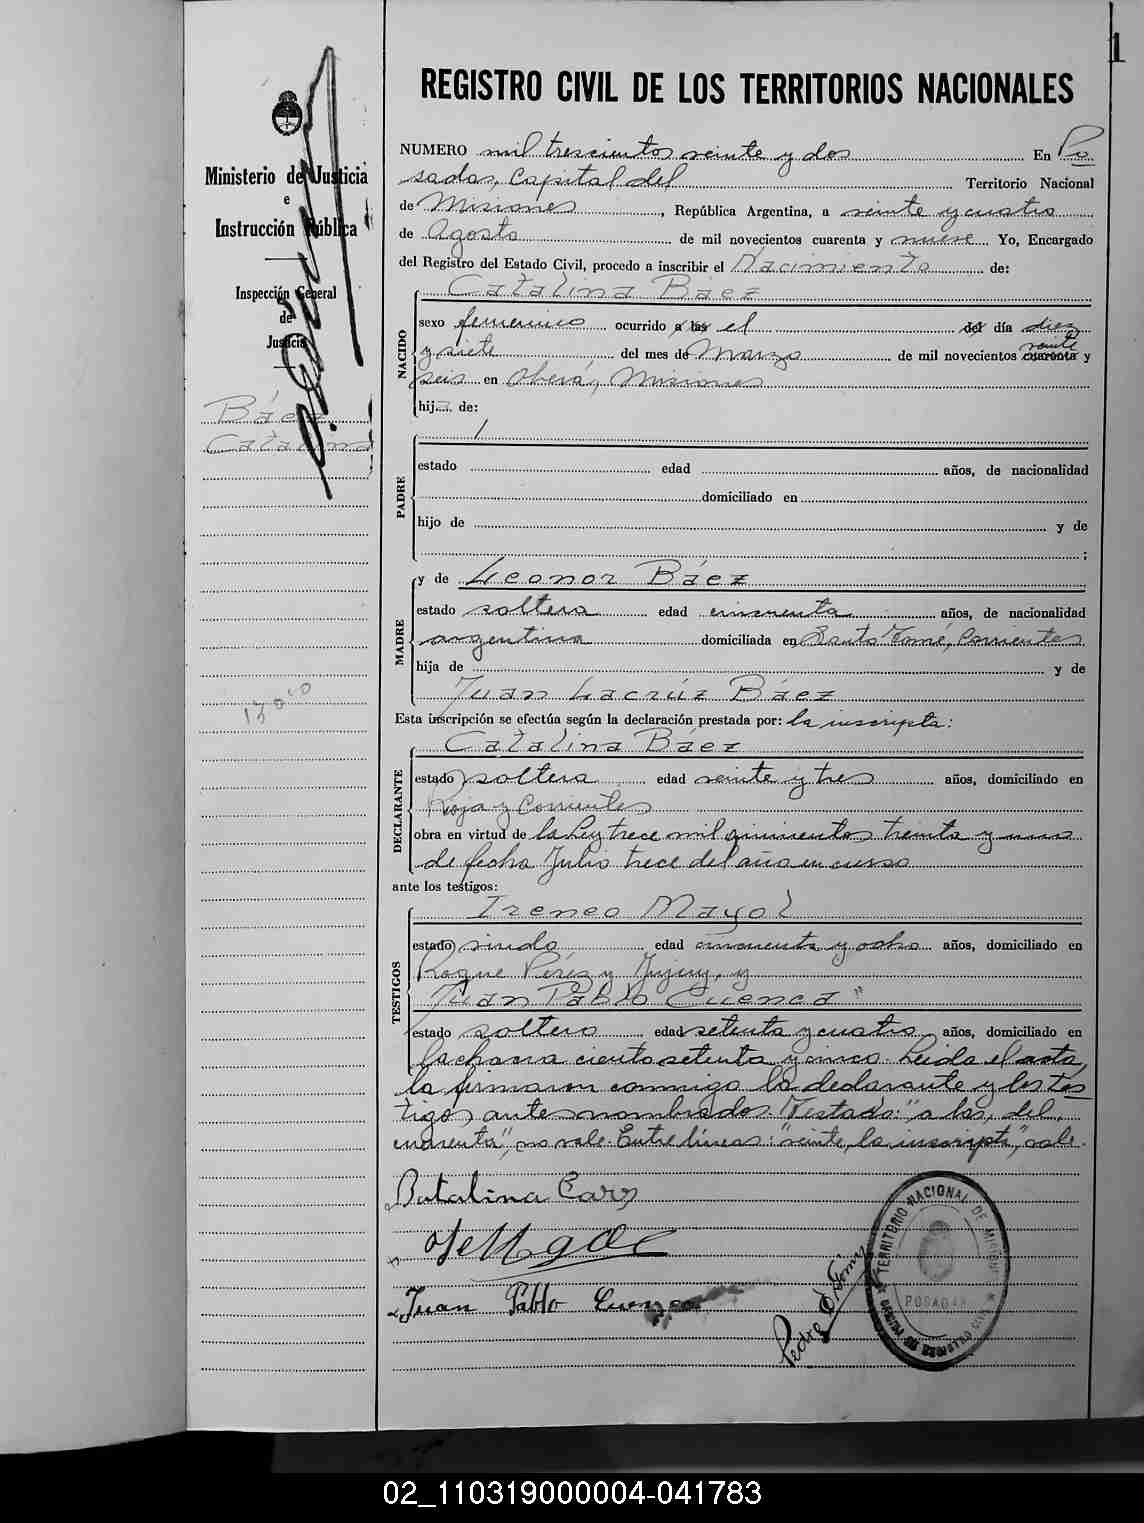 1
REGISTRO CIVIL DE LOS TERRITORIOS NACIONALES
Ministerio de Justicia
e
Instrucción Pública
Inspección General
de
Justicia
Báez
Catalina
NUMERO mil trescientos veinte y dos En Po
sadas, Capital del Territorio Nacional
de Misiones, República Argentina, a veinte y cuatro
de Agosto de mil novecientos cuarenta y nueve Yo, Encargado
del Registro del Estado Civil, procedo a inscribir el Nacimiento de:
Catalina Báez
NACIDO
sexo femenino ocurrido a las el del día diez
y siete del mes de Marzo de mil novecientos cuarenta veinte y
seis en Oberá, Misiones
hij de:
PADRE
estado edad años, de nacionalidad
domiciliado en
hijo de y de
;
MADRE
y de Leonor Báez
estado soltera edad cincuenta años, de nacionalidad
argentina domiciliada en Santo Tomé, Corrientes
hija de y de
Juan Lacrúz Báez
Esta inscripción se efectúa según la declaración prestada por: la inscripta:
DECLARANTE
Catalina Báez
estado soltera edad veinte y tres años, domiciliado en
Rioja y Corrientes
obra en virtud de la Ley trece mil quinientos treinta y uno
de fecha Julio trece del año en curso
ante los testigos:
TESTIGOS
Ireneo Mayol
estado viudo edad cincuenta y ocho años, domiciliado en
Roque Pérez y Jujuy, y
Juan Pablo Cuenca
estado soltero edad setenta y cuatro años, domiciliado en
la chacra ciento setenta y cinco. Leida el acta,
la firmaron conmigo la declarante y los tes
tigos antes nombrados. Testado: "a las, del,
cuarenta", no vale. Entre líneas: "veinte, la inscripta", vale.
Juan Pablo Cuenca
TERRITORIO NACIONAL DE MISIONES
POSADAS
02_110319000004-041783